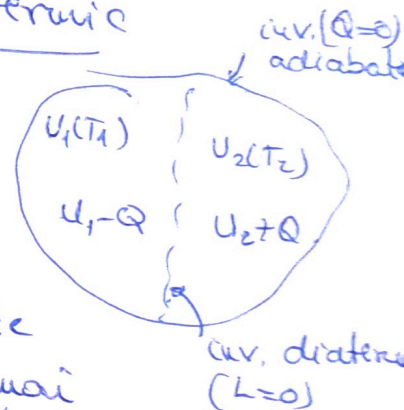 ermic
inv. (Q=0)
adiabat
U₁(T₁)
U₂(T₂)
U₁-Q
U₂+Q
inv. diater
(L=0)